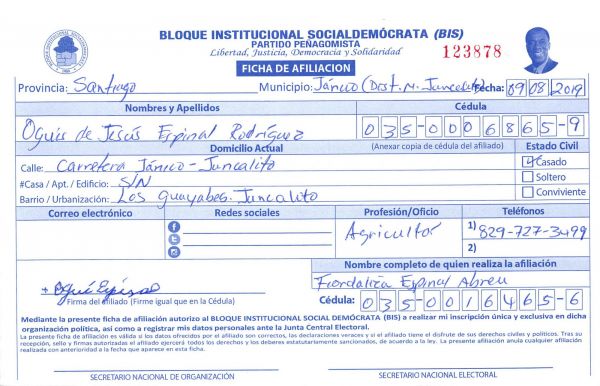 BLOQUE INSTITUCIONAL SOCIALDEMÓCRATA (BIS)
PARTIDO PEÑAGOMISTA
Libertad, Justicia, Democracia y Solidaridad
123878
FICHA DE AFILIACION
Provincia: Santiago Municipio: Jánico (Dist. M. Juncalito) Fecha: 09 08 2019
Nombres y Apellidos Cédula
Oguis de Jesús Espinal Rodríguez 035-0006865-9
Domicilio Actual (Anexar copia de cédula del afiliado) Estado Civil
Calle: Carretera Jánico-Juncalito Casado
#Casa / Apt. / Edificio: S/N Soltero
Barrio / Urbanización: Los Guayabos. Juncalito Conviviente
Correo electrónico Redes sociales Profesión/Oficio Teléfonos
Agricultor 1) 829-727-3499
2)
Nombre completo de quien realiza la afiliación
Fiordaliza Espinal Abreu
Firma del afiliado (Firme igual que en la Cédula) Cédula: 035-0016465-6
Mediante la presente ficha de afiliación autorizo al BLOQUE INSTITUCIONAL SOCIAL DEMÓCRATA (BIS) a realizar mi inscripción única y exclusiva en dicha
organización política, así como a registrar mis datos personales ante la Junta Central Electoral.
La presente ficha de afiliación es válida si los datos ofrecidos por el afiliado son correctos, las declaraciones veraces y si el afiliado tiene el disfrute de sus derechos civiles y políticos. Tras su
recepción, sello y firmas autorizadas el afiliado ejercerá todos los derechos y los deberes estatutariamente sancionados, de acuerdo a la ley. La presente afiliación anula cualquier afiliación
realizada con anterioridad a la fecha que aparece en esta ficha.
SECRETARIO NACIONAL DE ORGANIZACIÓN SECRETARIO NACIONAL ELECTORAL